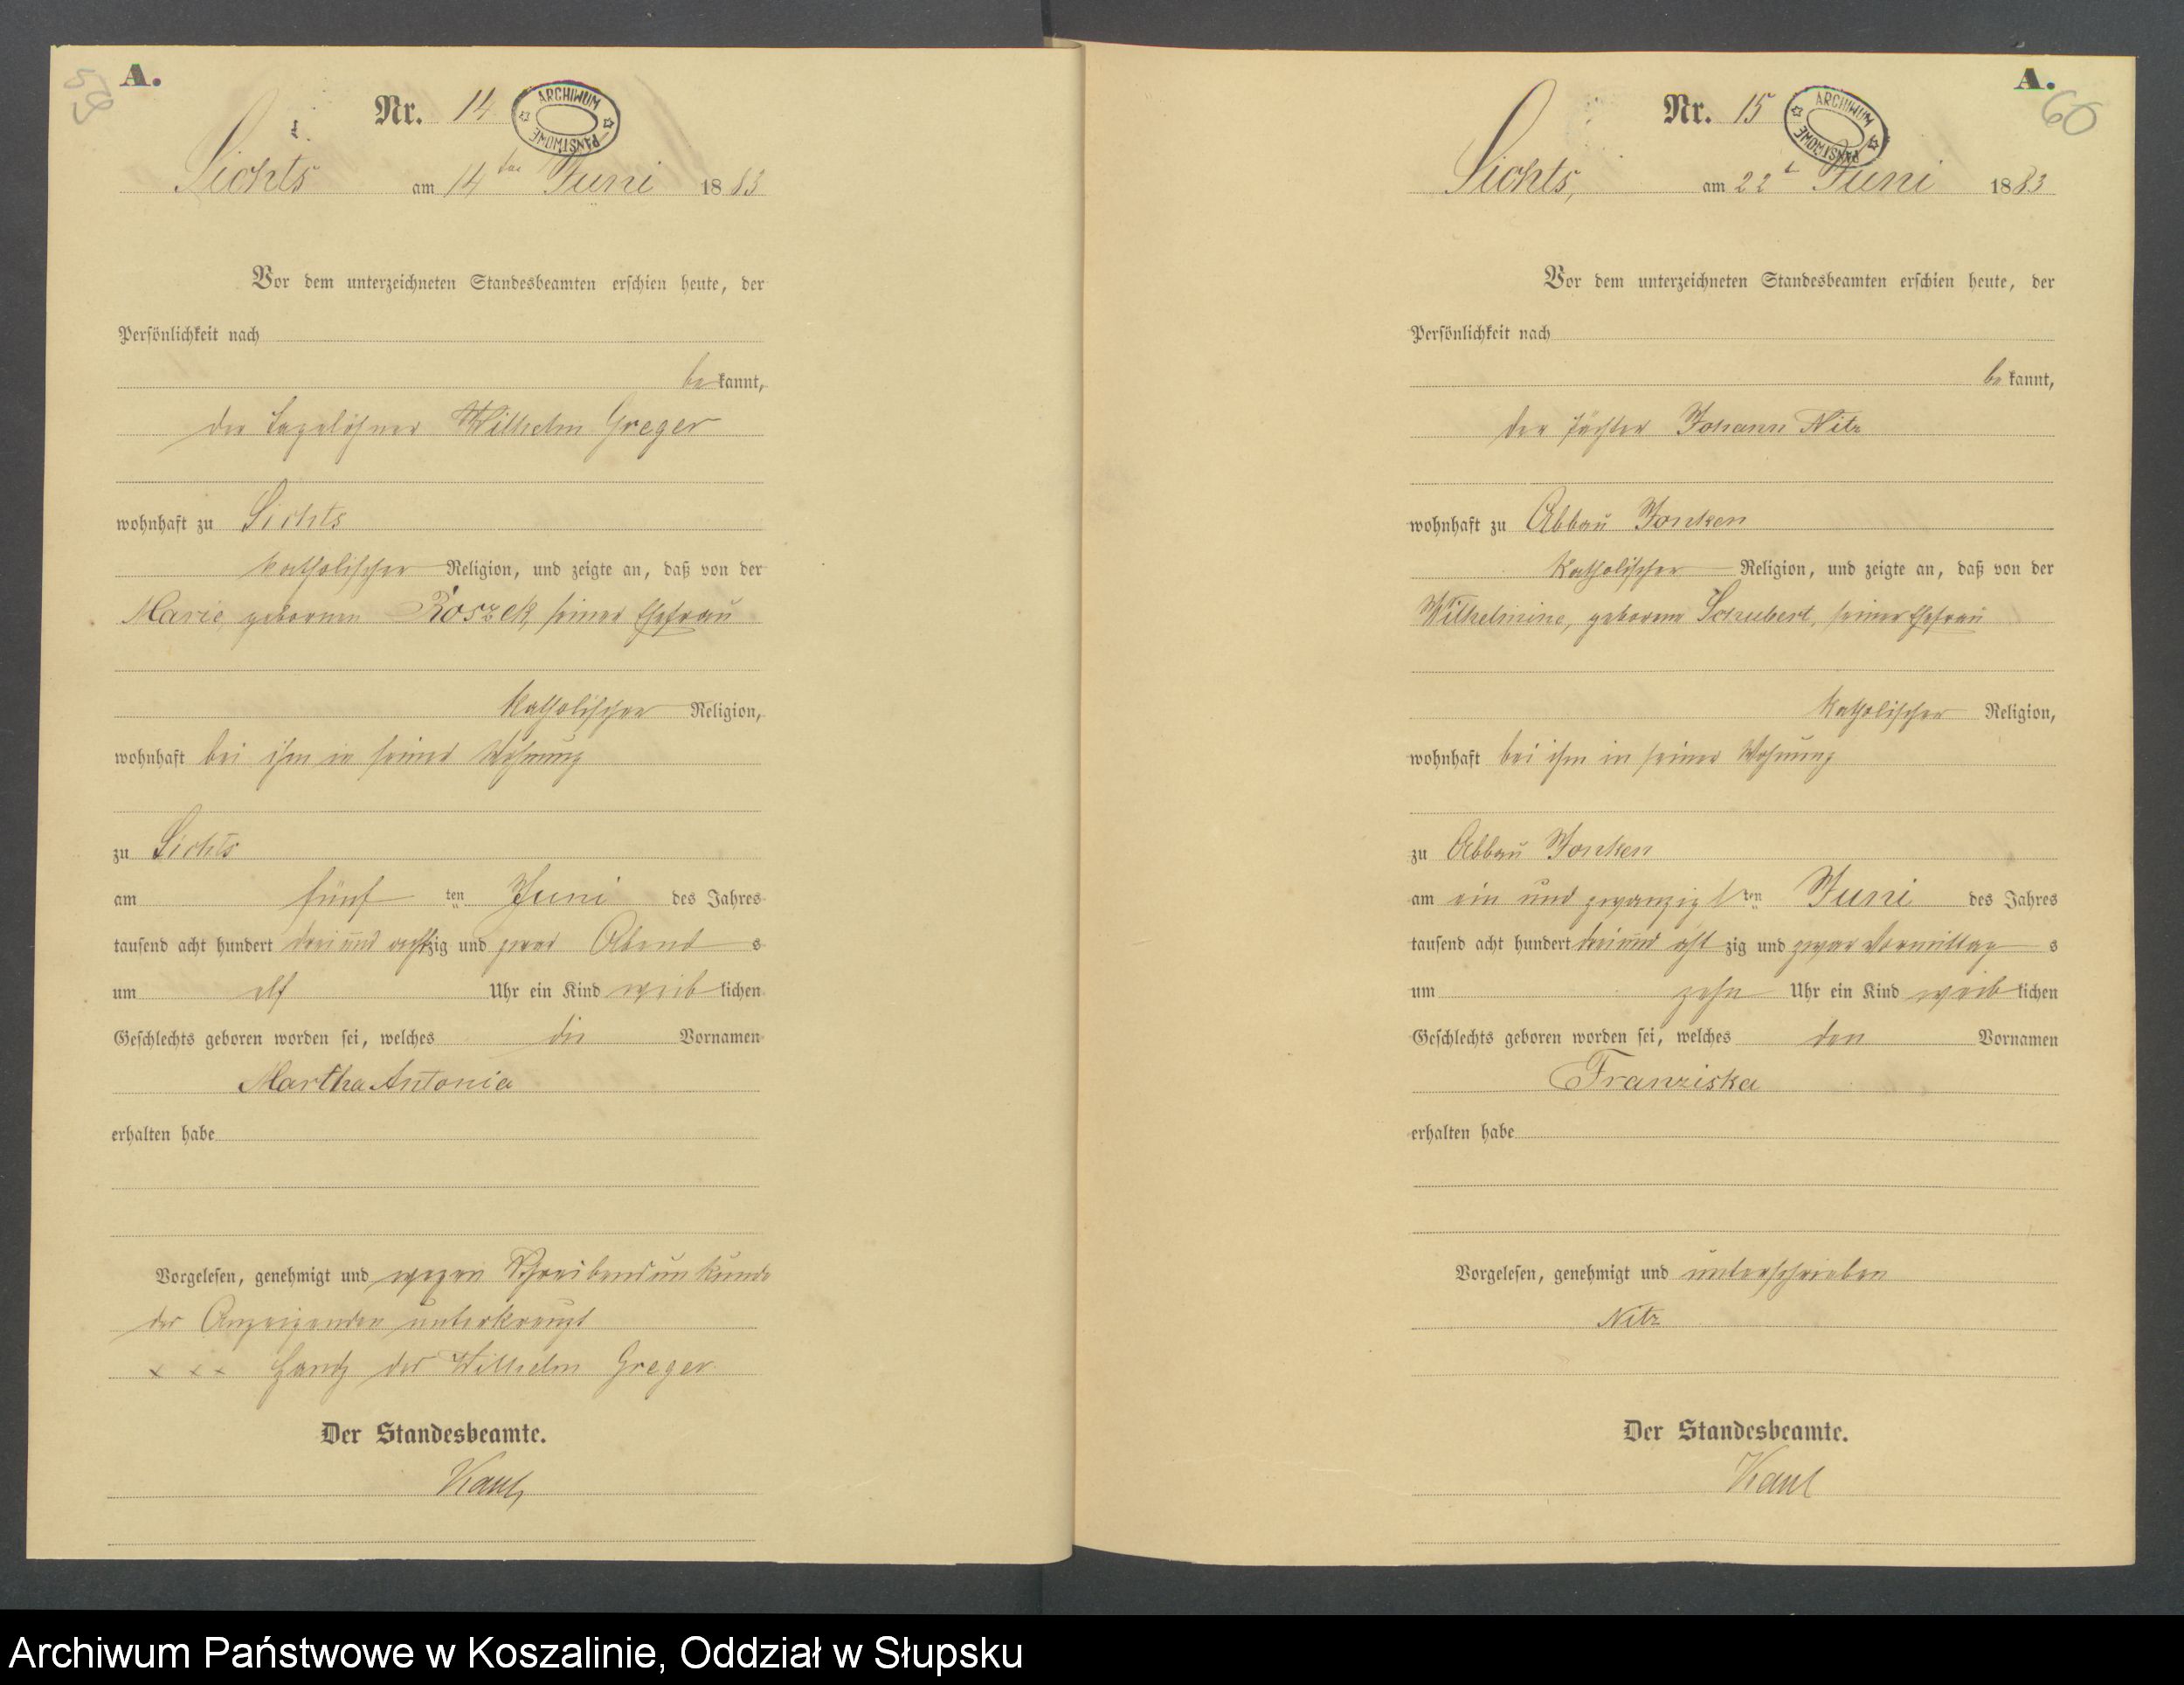 59
A.
Nr. 14
ARCHIWUM PAŃSTWOWE
Lichts am 14ten Juni 1883
Vor dem unterzeichneten Standesbeamten erschien heute, der
Persönlichkeit nach
bekannt,
der Tagelöhner Wilhelm Greger
wohnhaft zu Lichts
katholischer Religion, und zeigte an, daß von der
Marie, geborenen Roszek, seiner Ehefrau
katholischer Religion,
wohnhaft bei ihm in seiner Wohnung
zu Lichts
am fünf ten Juni des Jahres
tausend acht hundert drei und achtzig und zwar Abend s
um elf Uhr ein Kind weiblichen
Geschlechts geboren worden sei, welches die Vornamen
Martha Antonia
erhalten habe
Vorgelesen, genehmigt und wegen Schreibensunkunde
des Anzeigenden unterkreuzt
x x x Handz des Wilhelm Greger
Der Standesbeamte.
Kaul
A.
60
Nr. 15
ARCHIWUM PAŃSTWOWE
Lichts, am 22t Juni 1883
Vor dem unterzeichneten Standesbeamten erschien heute, der
Persönlichkeit nach
bekannt,
der Pächter Johann Nitz
wohnhaft zu Abbau Jonken
katholischer Religion, und zeigte an, daß von der
Wilhelmine, geborene Schubert, seiner Ehefrau
katholischer Religion,
wohnhaft bei ihm in seiner Wohnung
zu Abbau Jonken
am ein und zwanzigsten Juni des Jahres
tausend acht hundert drei und achtzig und zwar Vormittag s
um zehn Uhr ein Kind weiblichen
Geschlechts geboren worden sei, welches den Vornamen
Franziska
erhalten habe
Vorgelesen, genehmigt und unterschrieben
Nitz
Der Standesbeamte.
Kaul
Archiwum Państwowe w Koszalinie, Oddział w Słupsku